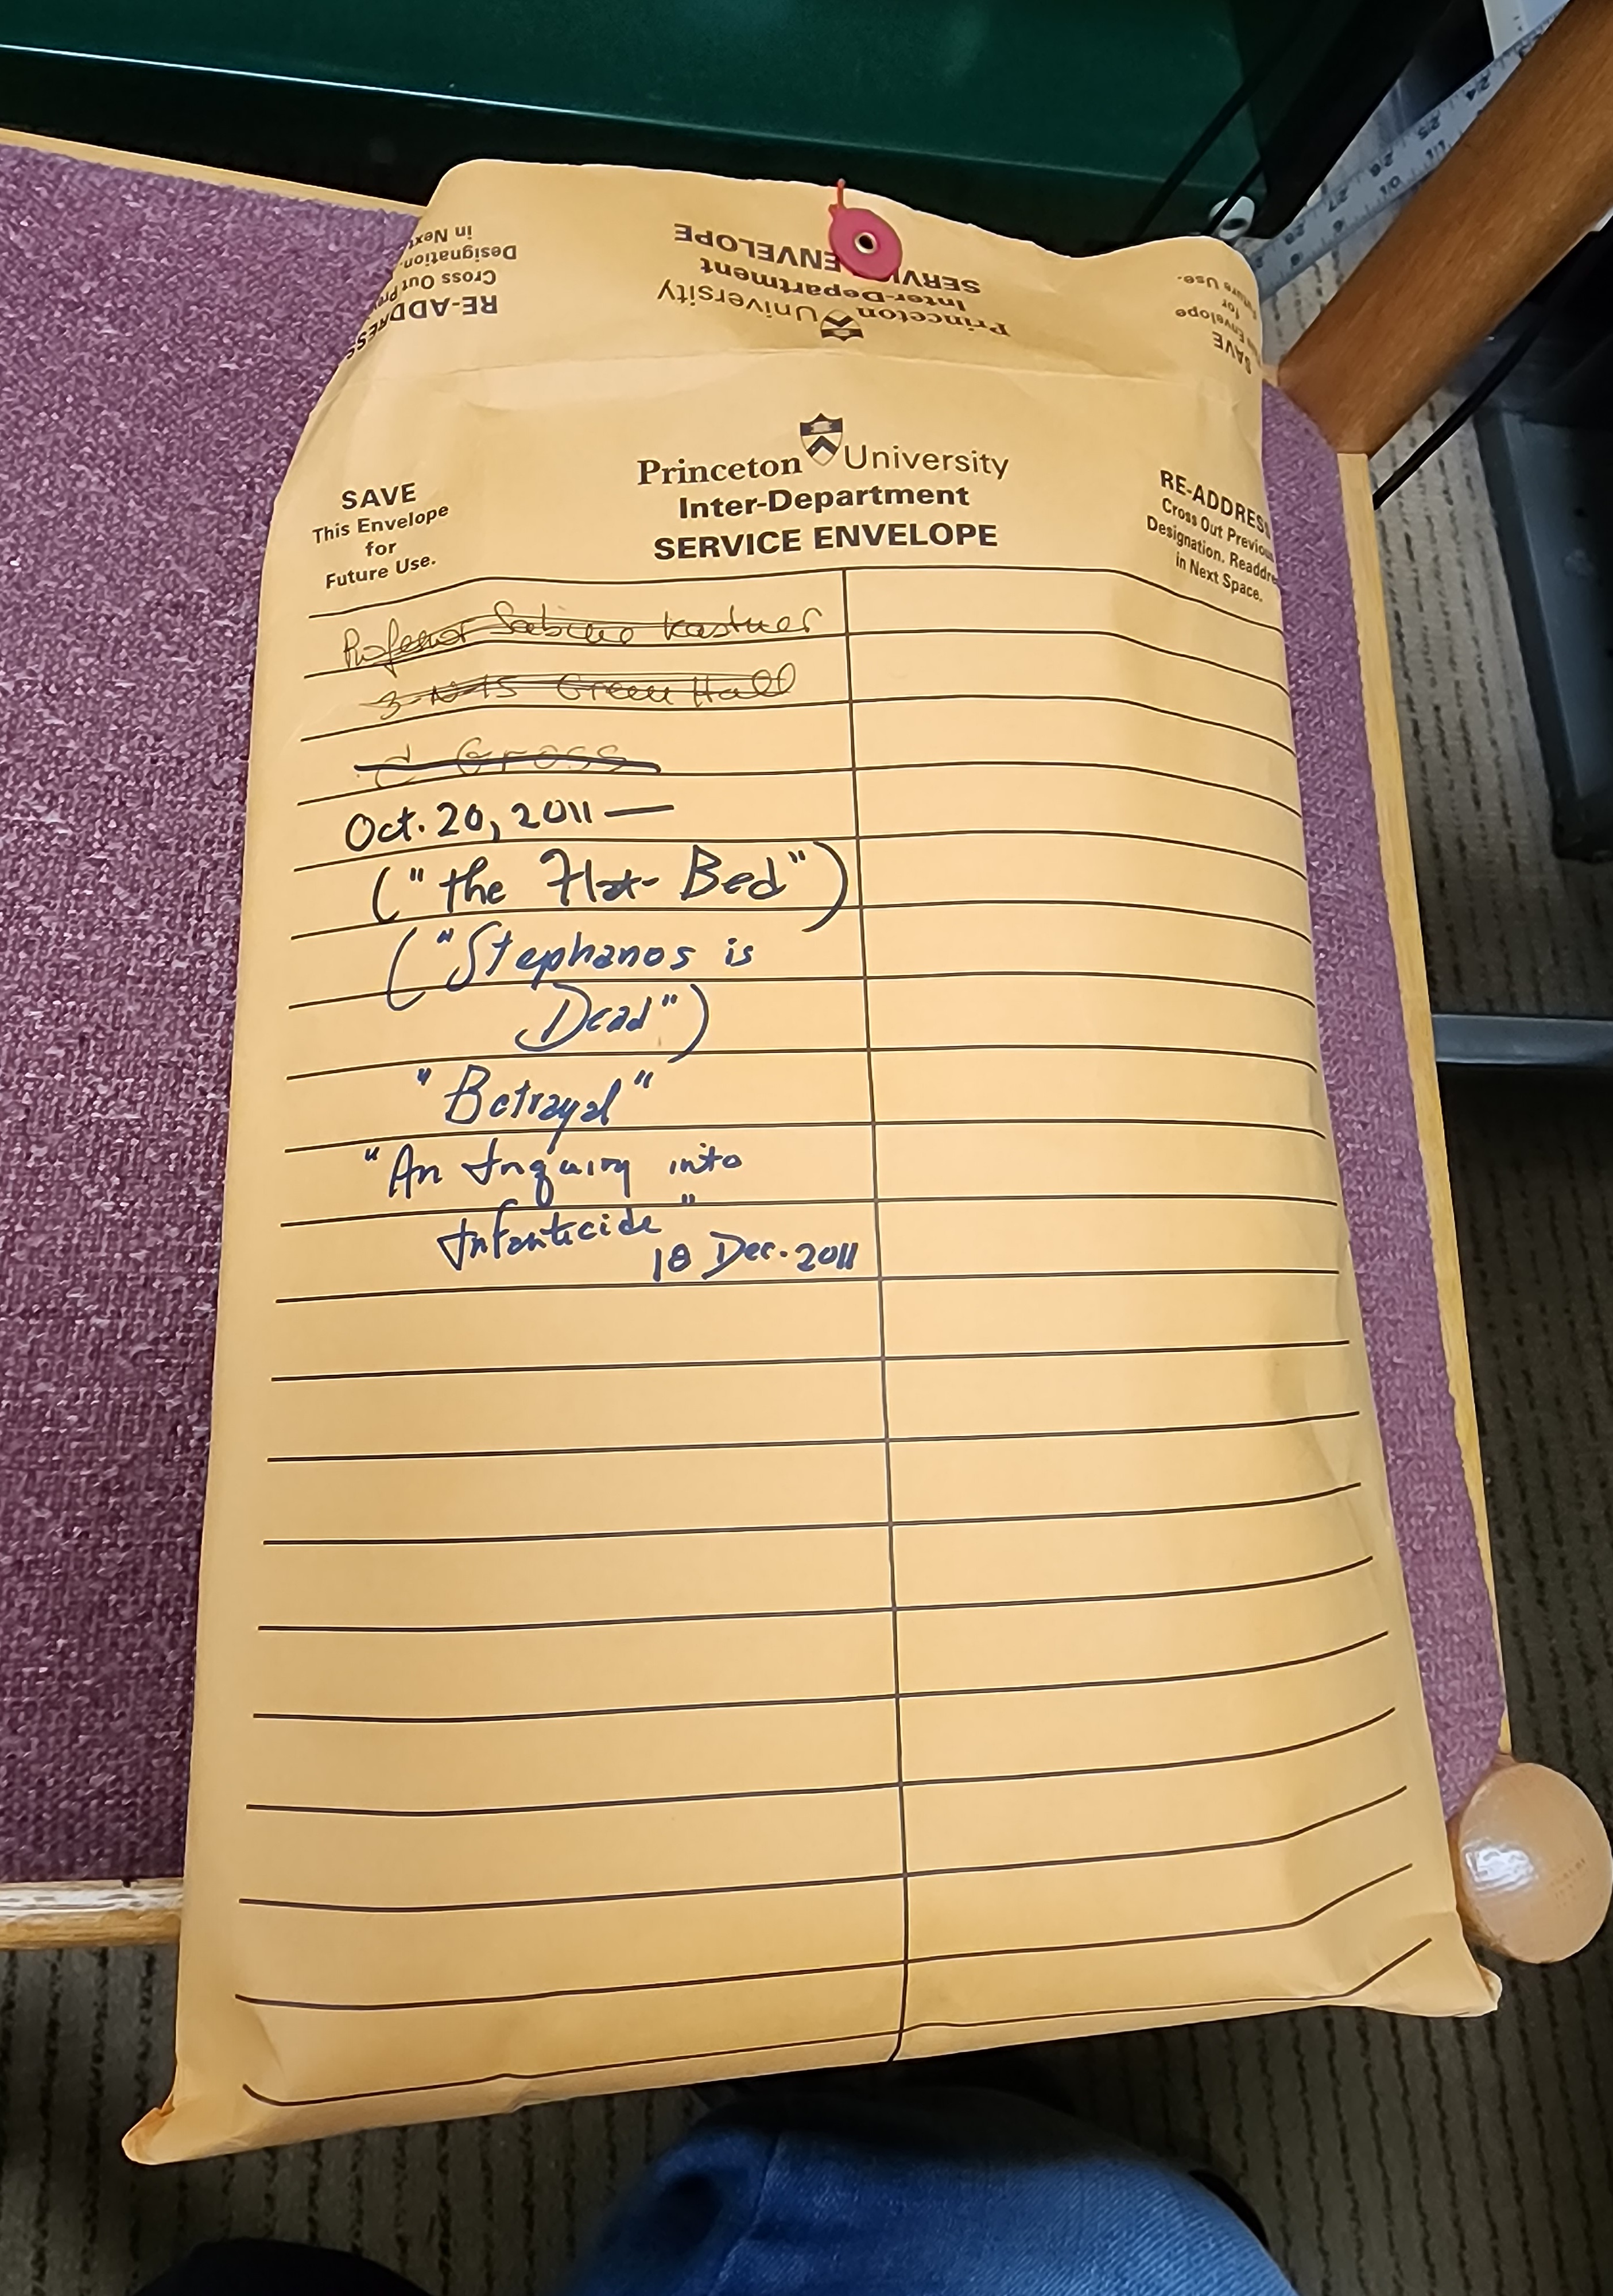 in Next
Designation.
Cross Out Pre
RE-ADDRESS
SERVICE ENVELOPE
Inter-Department
Princeton University
ture Use.
for
Envelope
SAVE
Princeton University
Inter-Department
SERVICE ENVELOPE
SAVE
This Envelope
for
Future Use.
RE-ADDRESS
Cross Out Previous
Designation, Readdre
in Next Space.
Professor Sabine Kastner
3-N-15 Green Hall
C Gross
Oct. 20, 2011 —
("the Hot-Bed")
("Stephanos is
Dead")
"Betrayal"
"An Inquiry into
Infanticide"
18 Dec. 2011